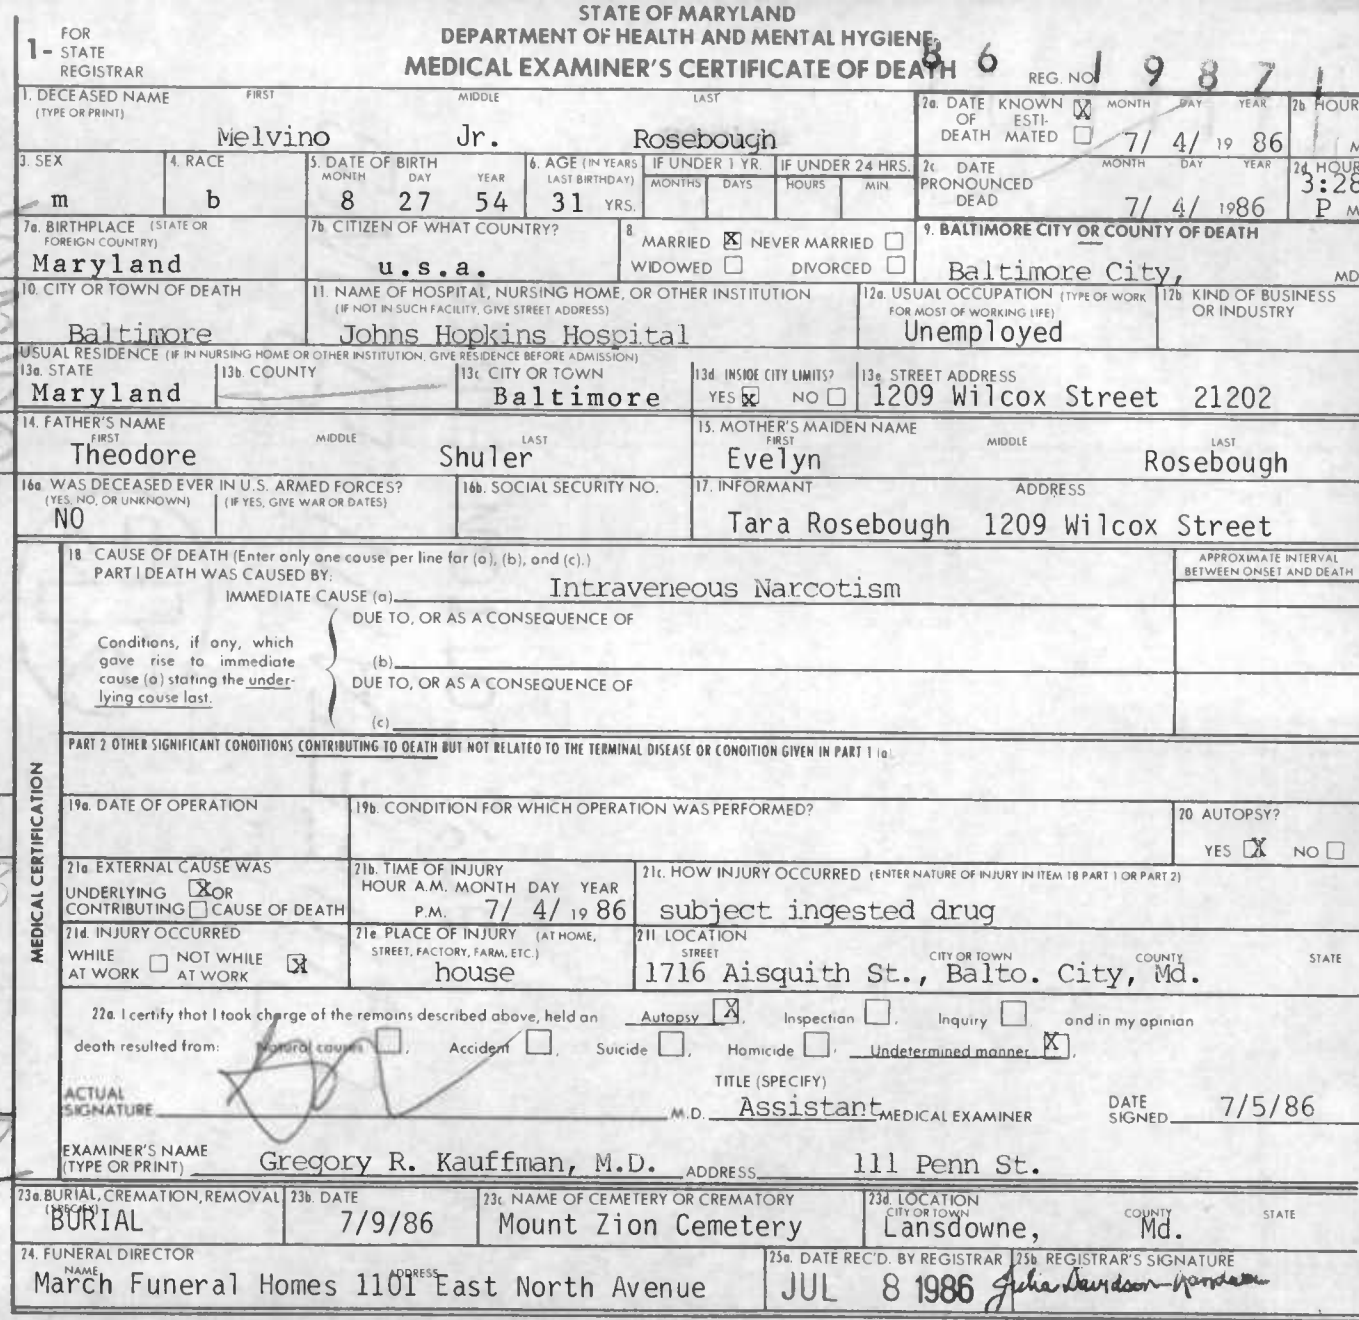 STATE OF MARYLAND
DEPARTMENT OF HEALTH AND MENTAL HYGIENE
MEDICAL EXAMINER'S CERTIFICATE OF DEATH
1- FOR STATE REGISTRAR
86 REG. NO. 19871
1. DECEASED NAME (TYPE OR PRINT) FIRST MIDDLE LAST
Melvino Jr. Rosebough
2a. DATE OF DEATH KNOWN X ESTIMATED MONTH DAY YEAR
7/ 4/ 19 86
2b HOUR M
3. SEX
m
4. RACE
b
5. DATE OF BIRTH MONTH DAY YEAR
8 27 54
6. AGE (IN YEARS LAST BIRTHDAY)
31 YRS.
IF UNDER 1 YR. MONTHS DAYS
IF UNDER 24 HRS. HOURS MIN.
2c DATE PRONOUNCED DEAD MONTH DAY YEAR
7/ 4/ 1986
2d HOUR
3:28 P M
7a. BIRTHPLACE (STATE OR FOREIGN COUNTRY)
Maryland
7b. CITIZEN OF WHAT COUNTRY?
u.s.a.
8 MARRIED X NEVER MARRIED
WIDOWED DIVORCED
9. BALTIMORE CITY OR COUNTY OF DEATH
Baltimore City, MD
10. CITY OR TOWN OF DEATH
Baltimore
11. NAME OF HOSPITAL, NURSING HOME, OR OTHER INSTITUTION
(IF NOT IN SUCH FACILITY, GIVE STREET ADDRESS)
Johns Hopkins Hospital
12a. USUAL OCCUPATION (TYPE OF WORK FOR MOST OF WORKING LIFE)
Unemployed
12b KIND OF BUSINESS OR INDUSTRY
USUAL RESIDENCE (IF IN NURSING HOME OR OTHER INSTITUTION, GIVE RESIDENCE BEFORE ADMISSION)
13a. STATE
Maryland
13b. COUNTY
13c CITY OR TOWN
Baltimore
13d INSIDE CITY LIMITS?
YES X NO
13e STREET ADDRESS
1209 Wilcox Street 21202
14. FATHER'S NAME FIRST MIDDLE LAST
Theodore Shuler
15. MOTHER'S MAIDEN NAME FIRST MIDDLE LAST
Evelyn Rosebough
16a WAS DECEASED EVER IN U.S. ARMED FORCES?
(YES, NO, OR UNKNOWN) (IF YES, GIVE WAR OR DATES)
NO
16b. SOCIAL SECURITY NO.
17. INFORMANT ADDRESS
Tara Rosebough 1209 Wilcox Street
MEDICAL CERTIFICATION
18 CAUSE OF DEATH (Enter only one cause per line for (a), (b), and (c).)
PART I DEATH WAS CAUSED BY:
IMMEDIATE CAUSE (a) Intraveneous Narcotism
APPROXIMATE INTERVAL BETWEEN ONSET AND DEATH
DUE TO, OR AS A CONSEQUENCE OF
Conditions, if any, which gave rise to immediate cause (a) stating the underlying cause last.
(b)
DUE TO, OR AS A CONSEQUENCE OF
(c)
PART 2 OTHER SIGNIFICANT CONDITIONS CONTRIBUTING TO DEATH BUT NOT RELATED TO THE TERMINAL DISEASE OR CONDITION GIVEN IN PART 1 (a).
19a. DATE OF OPERATION
19b. CONDITION FOR WHICH OPERATION WAS PERFORMED?
20 AUTOPSY?
YES X NO
21a EXTERNAL CAUSE WAS
UNDERLYING X OR
CONTRIBUTING CAUSE OF DEATH
21b. TIME OF INJURY
HOUR A.M. MONTH DAY YEAR
P.M. 7/ 4/ 19 86
21c. HOW INJURY OCCURRED (ENTER NATURE OF INJURY IN ITEM 18 PART 1 OR PART 2)
subject ingested drug
21d. INJURY OCCURRED
WHILE AT WORK NOT WHILE AT WORK X
21e PLACE OF INJURY (AT HOME, STREET, FACTORY, FARM, ETC.)
house
21f LOCATION
STREET CITY OR TOWN COUNTY STATE
1716 Aisquith St., Balto. City, Md.
22a. I certify that I took charge of the remains described above, held an Autopsy X, Inspection, Inquiry and in my opinion
death resulted from: Natural causes, Accident, Suicide, Homicide, Undetermined manner X,
ACTUAL SIGNATURE M.D.
TITLE (SPECIFY)
Assistant MEDICAL EXAMINER
DATE SIGNED 7/5/86
EXAMINER'S NAME (TYPE OR PRINT) Gregory R. Kauffman, M.D. ADDRESS 111 Penn St.
23a. BURIAL, CREMATION, REMOVAL (SPECIFY)
BURIAL
23b. DATE
7/9/86
23c. NAME OF CEMETERY OR CREMATORY
Mount Zion Cemetery
23d. LOCATION
CITY OR TOWN COUNTY STATE
Lansdowne, Md.
24. FUNERAL DIRECTOR
NAME ADDRESS
March Funeral Homes 1101 East North Avenue
25a. DATE REC'D. BY REGISTRAR
JUL 8 1986
25b REGISTRAR'S SIGNATURE
Julia Davidson-Randall